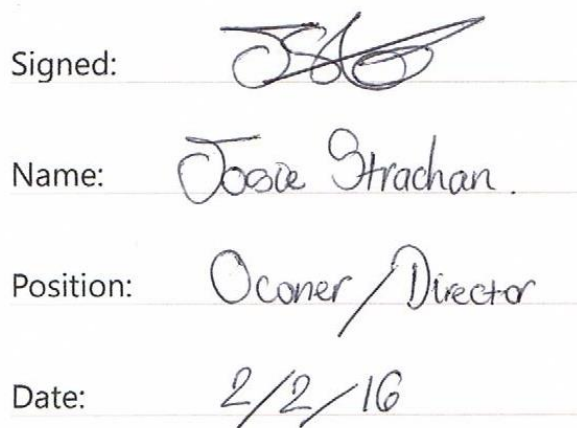 Signed:
Name: Josie Strachan.
Position: Owner/Director
Date: 2/2/16